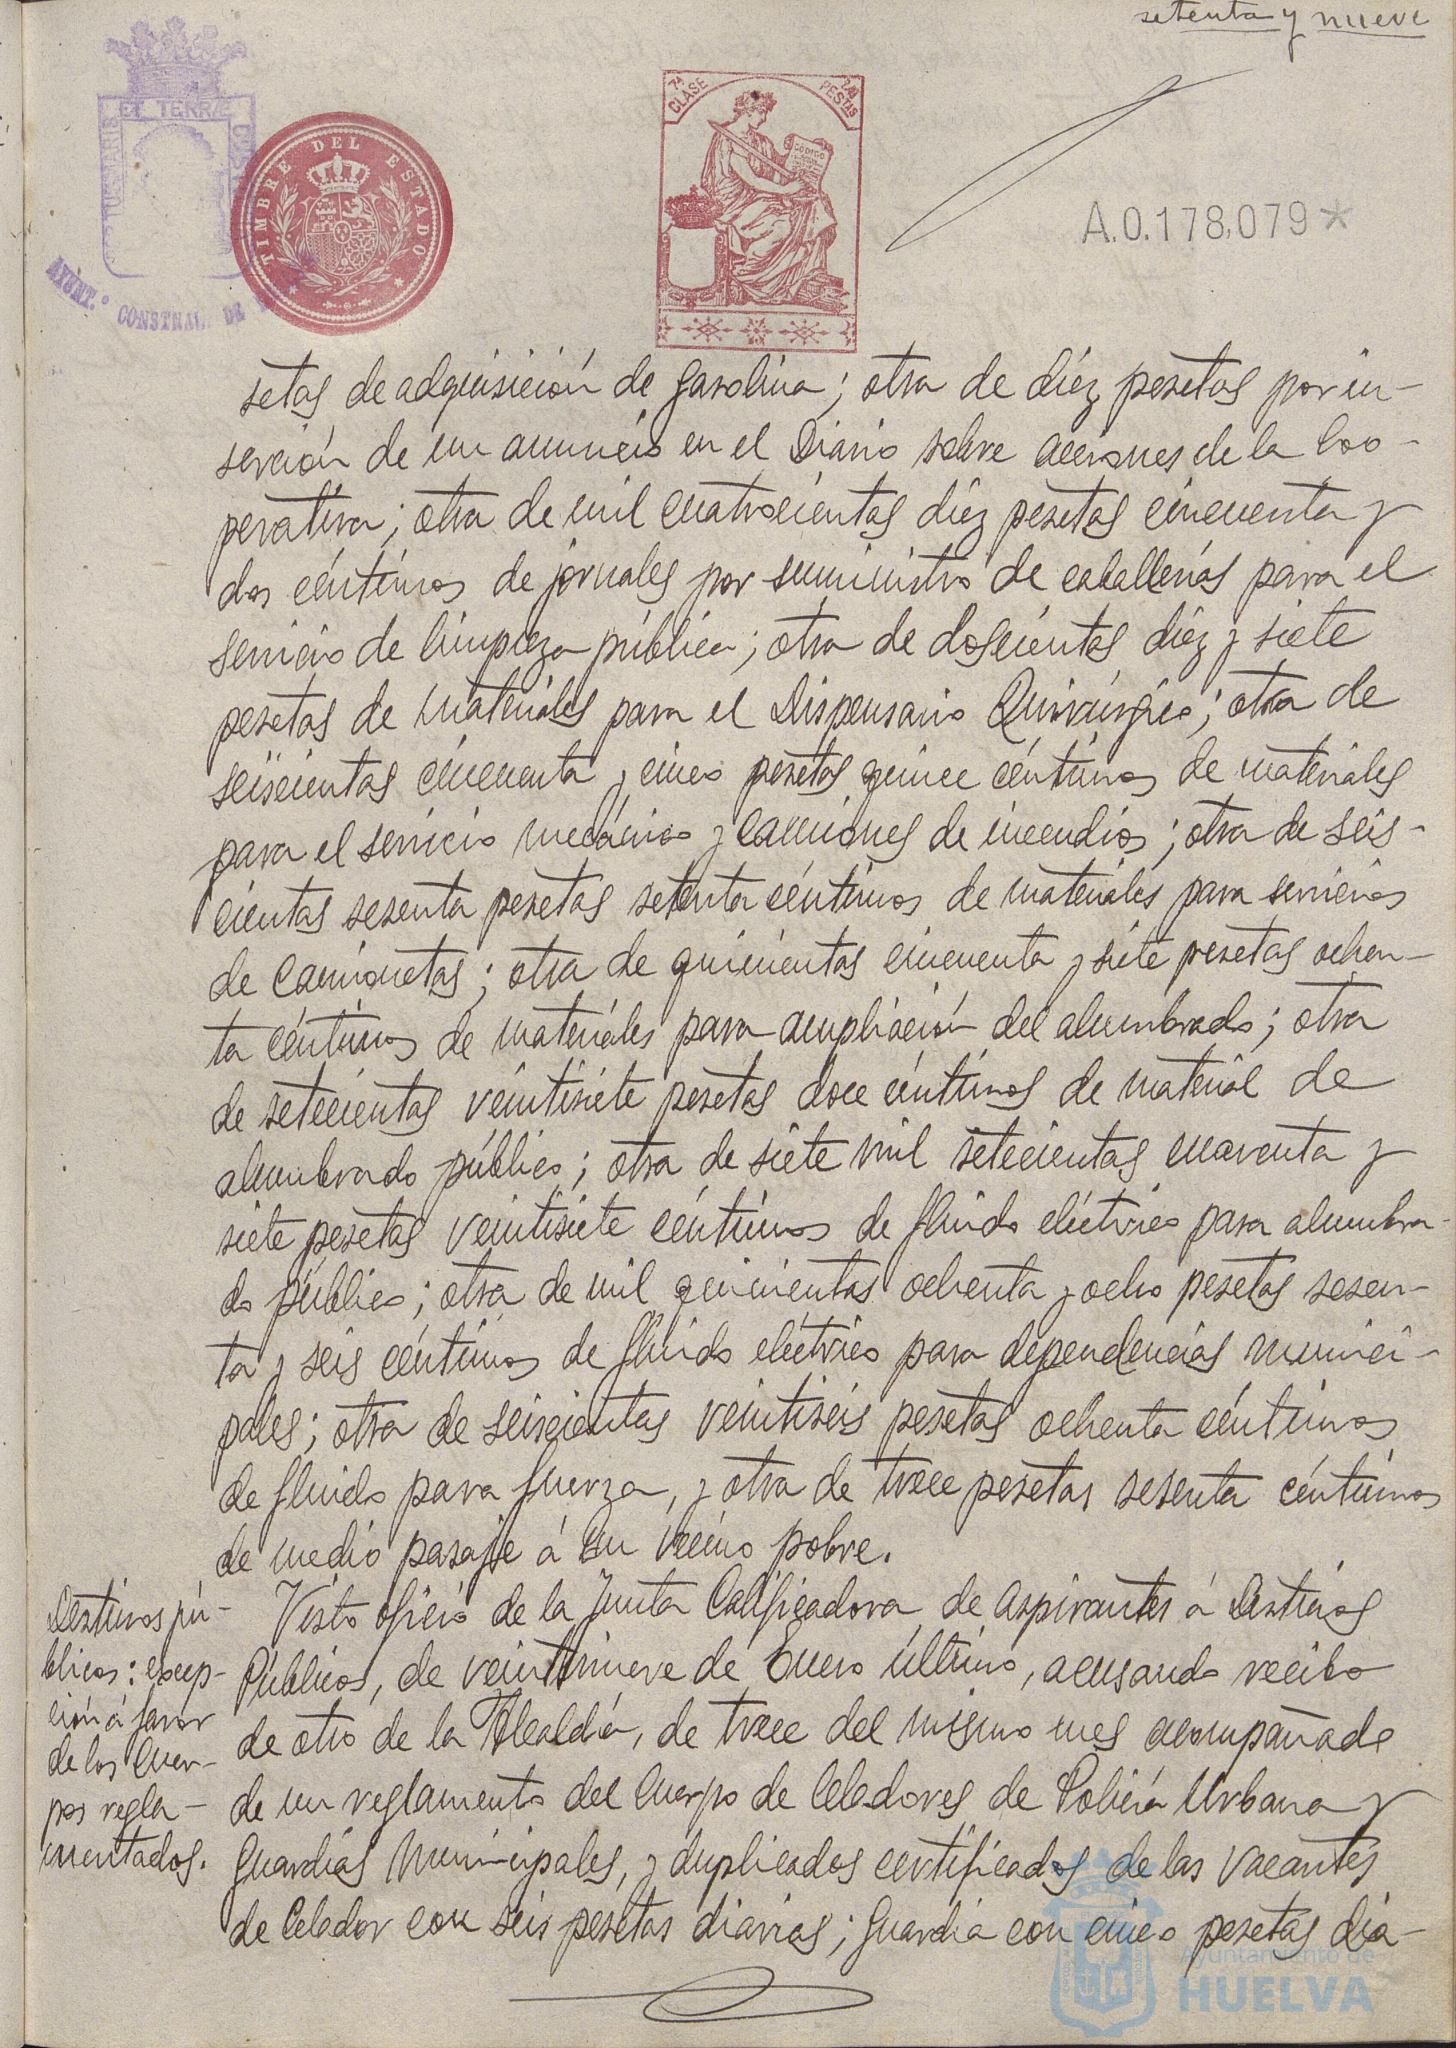 setenta y nueve
7ª CLASE
2,40 PESTAS
CODIGO
ET TERRÆ
TIMBRE DEL ESTADO
A.0.178,079*
AYUNT.º CONSTNAL. DE
setas de adquisición de gasolina; otra de diéz pesetas por in-
serción de un anuncio en el Diario sobre acciones de la Coo-
perativa; otra de mil cuatrocientas diéz pesetas cincuenta y
dos céntimos de jornales por suministro de caballerías para el
servicio de limpieza pública; otra de doscientas diéz y siete
pesetas de materiales para el Dispensario Quirúrgico; otra de
seiscientas cincuenta y cinco pesetas quince céntimos de materiales
para el servicio mecánico y camiones de incendios; otra de seis-
cientas sesenta pesetas setenta céntimos de materiales para servicios
de camionetas; otra de quinientas cincuenta y siete pesetas ochen-
ta céntimos de materiales para ampliación del alumbrado; otra
de setecientas veintisiete pesetas doce céntimos de material de
alumbrado público; otra de siete mil setecientas cuarenta y
siete pesetas veintisiete céntimos de fluido eléctrico para alumbra-
do público; otra de mil quinientas ochenta y ocho pesetas sesen-
ta y seis céntimos de fluido eléctrico para dependencias munici-
pales; otra de seiscientas veintiseis pesetas ochenta céntimos
de fluido para fuerza, y otra de trece pesetas sesenta céntimos
de medio pasaje á un vecino pobre.
Destinos pú-
blicos: excep-
ción á favor
de los Cuer-
pos regla-
mentados.
Visto oficio de la Junta Calificadora de aspirantes á Destinos
Públicos, de veintinueve de Enero último, acusando recibo
de otro de la Alcaldía, de trece del mismo mes acompañado
de un reglamento del Cuerpo de Celadores de Policía Urbana y
Guardias Municipales, y duplicados certificados de las vacantes
de Celador con seis pesetas diarias; Guardia con cinco pesetas dia-
Ayuntamiento de
HUELVA